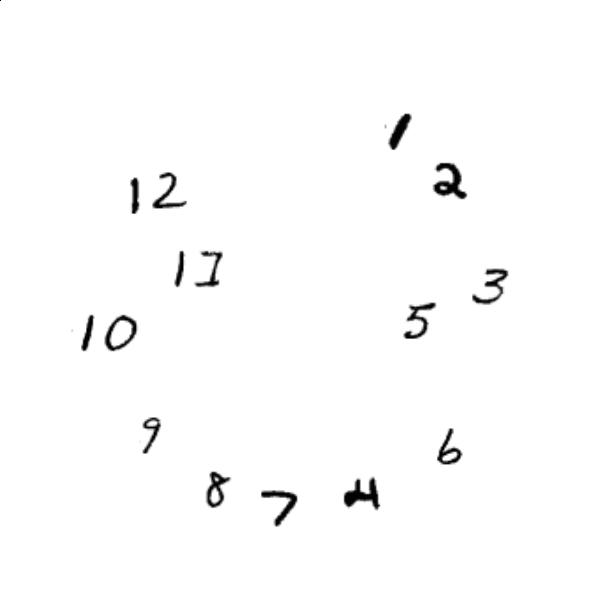 1
2
12
11
3
5
10
9
6
8 7 4